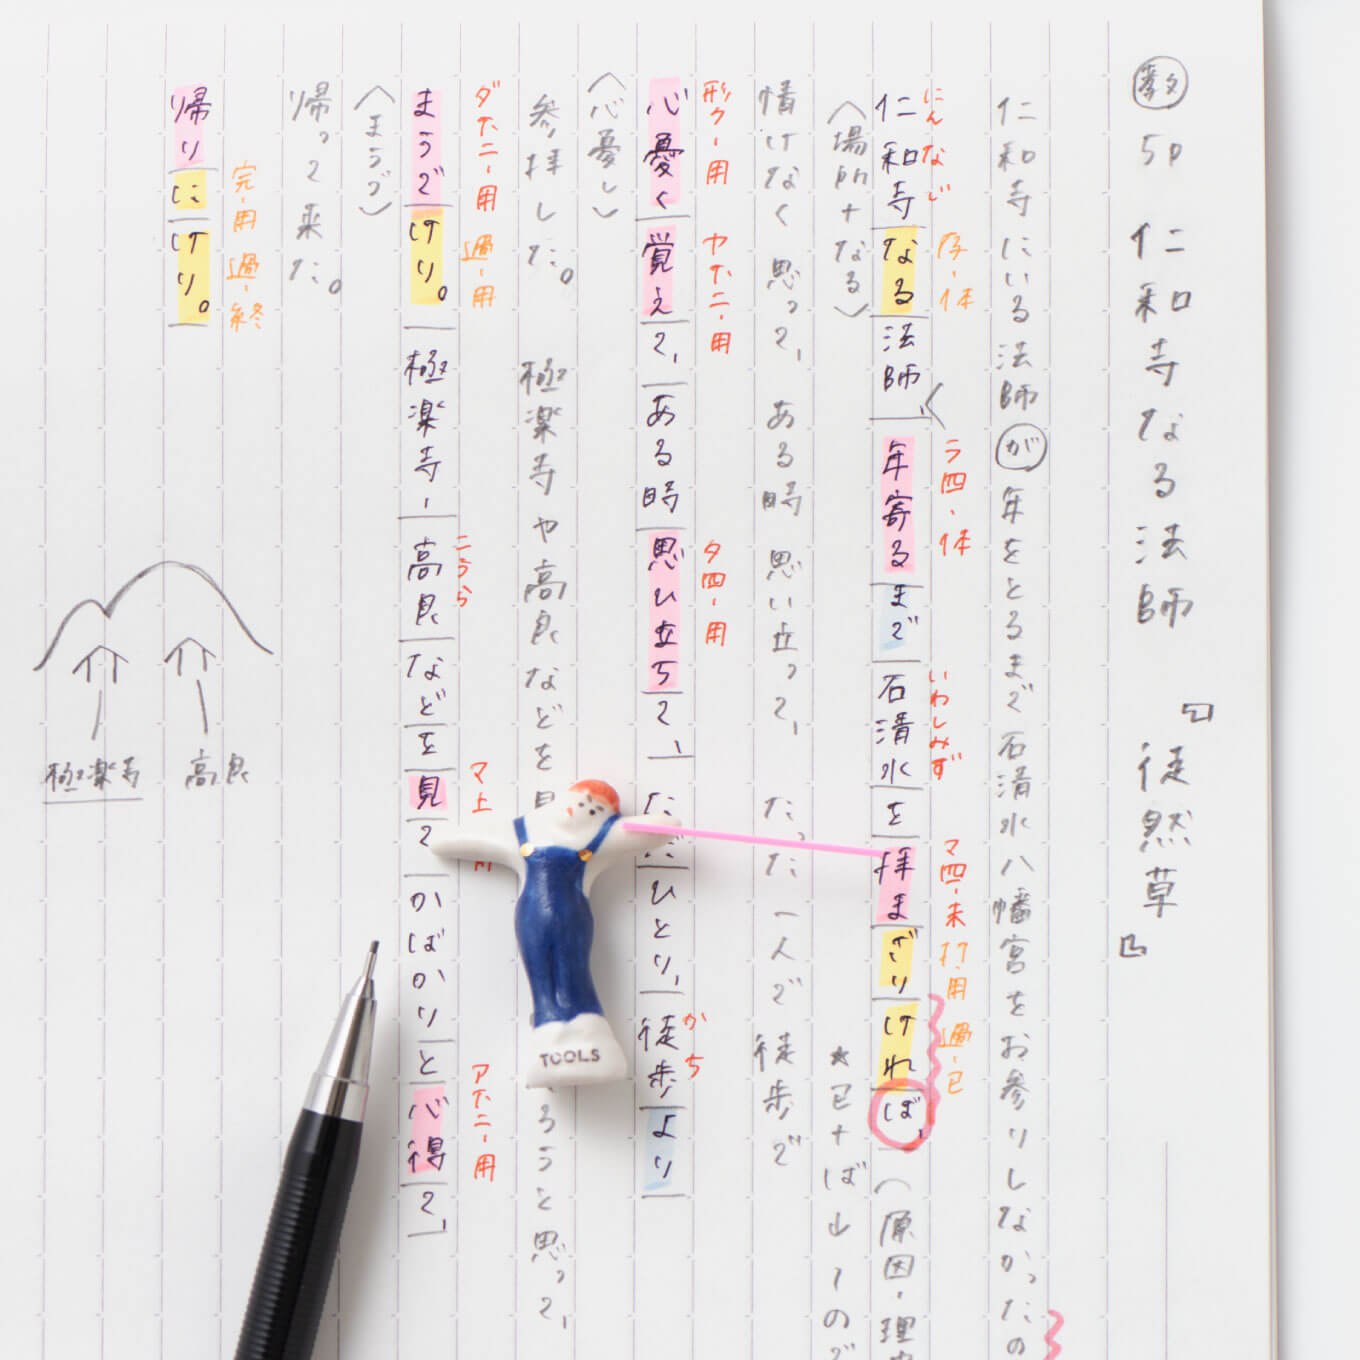 教 5P 仁和寺なる法師 『徒然草』
仁和寺にいる法師が年をとるまで石清水八幡宮をお参りしなかったの
にんなじ 存・体 ラ四・体 いわしみず マ四・未 打・用 過・已
仁和寺なる法師、年寄るまで石清水を拝まざりければ、（原因・理
〈場所+なる〉 ★已+ば→〜ので
情けなく思って、ある時思い立って、たった一人で徒歩で
形ク・用 ヤ下二・用 タ四・用 かち
心憂く覚えて、ある時思ひ立ちて、ひとり、徒歩より
〈心憂し〉
参拝した。極楽寺や高良などを ろうと思って、
ダ下二・用 過・用 こうら マ上 ア下二・用
まうでけり。極楽寺・高良などを見て かばかりと心得て、
〈まうづ〉
帰って来た。
完・用 過・終
帰りにけり。
高良
極楽寺
TOOLS